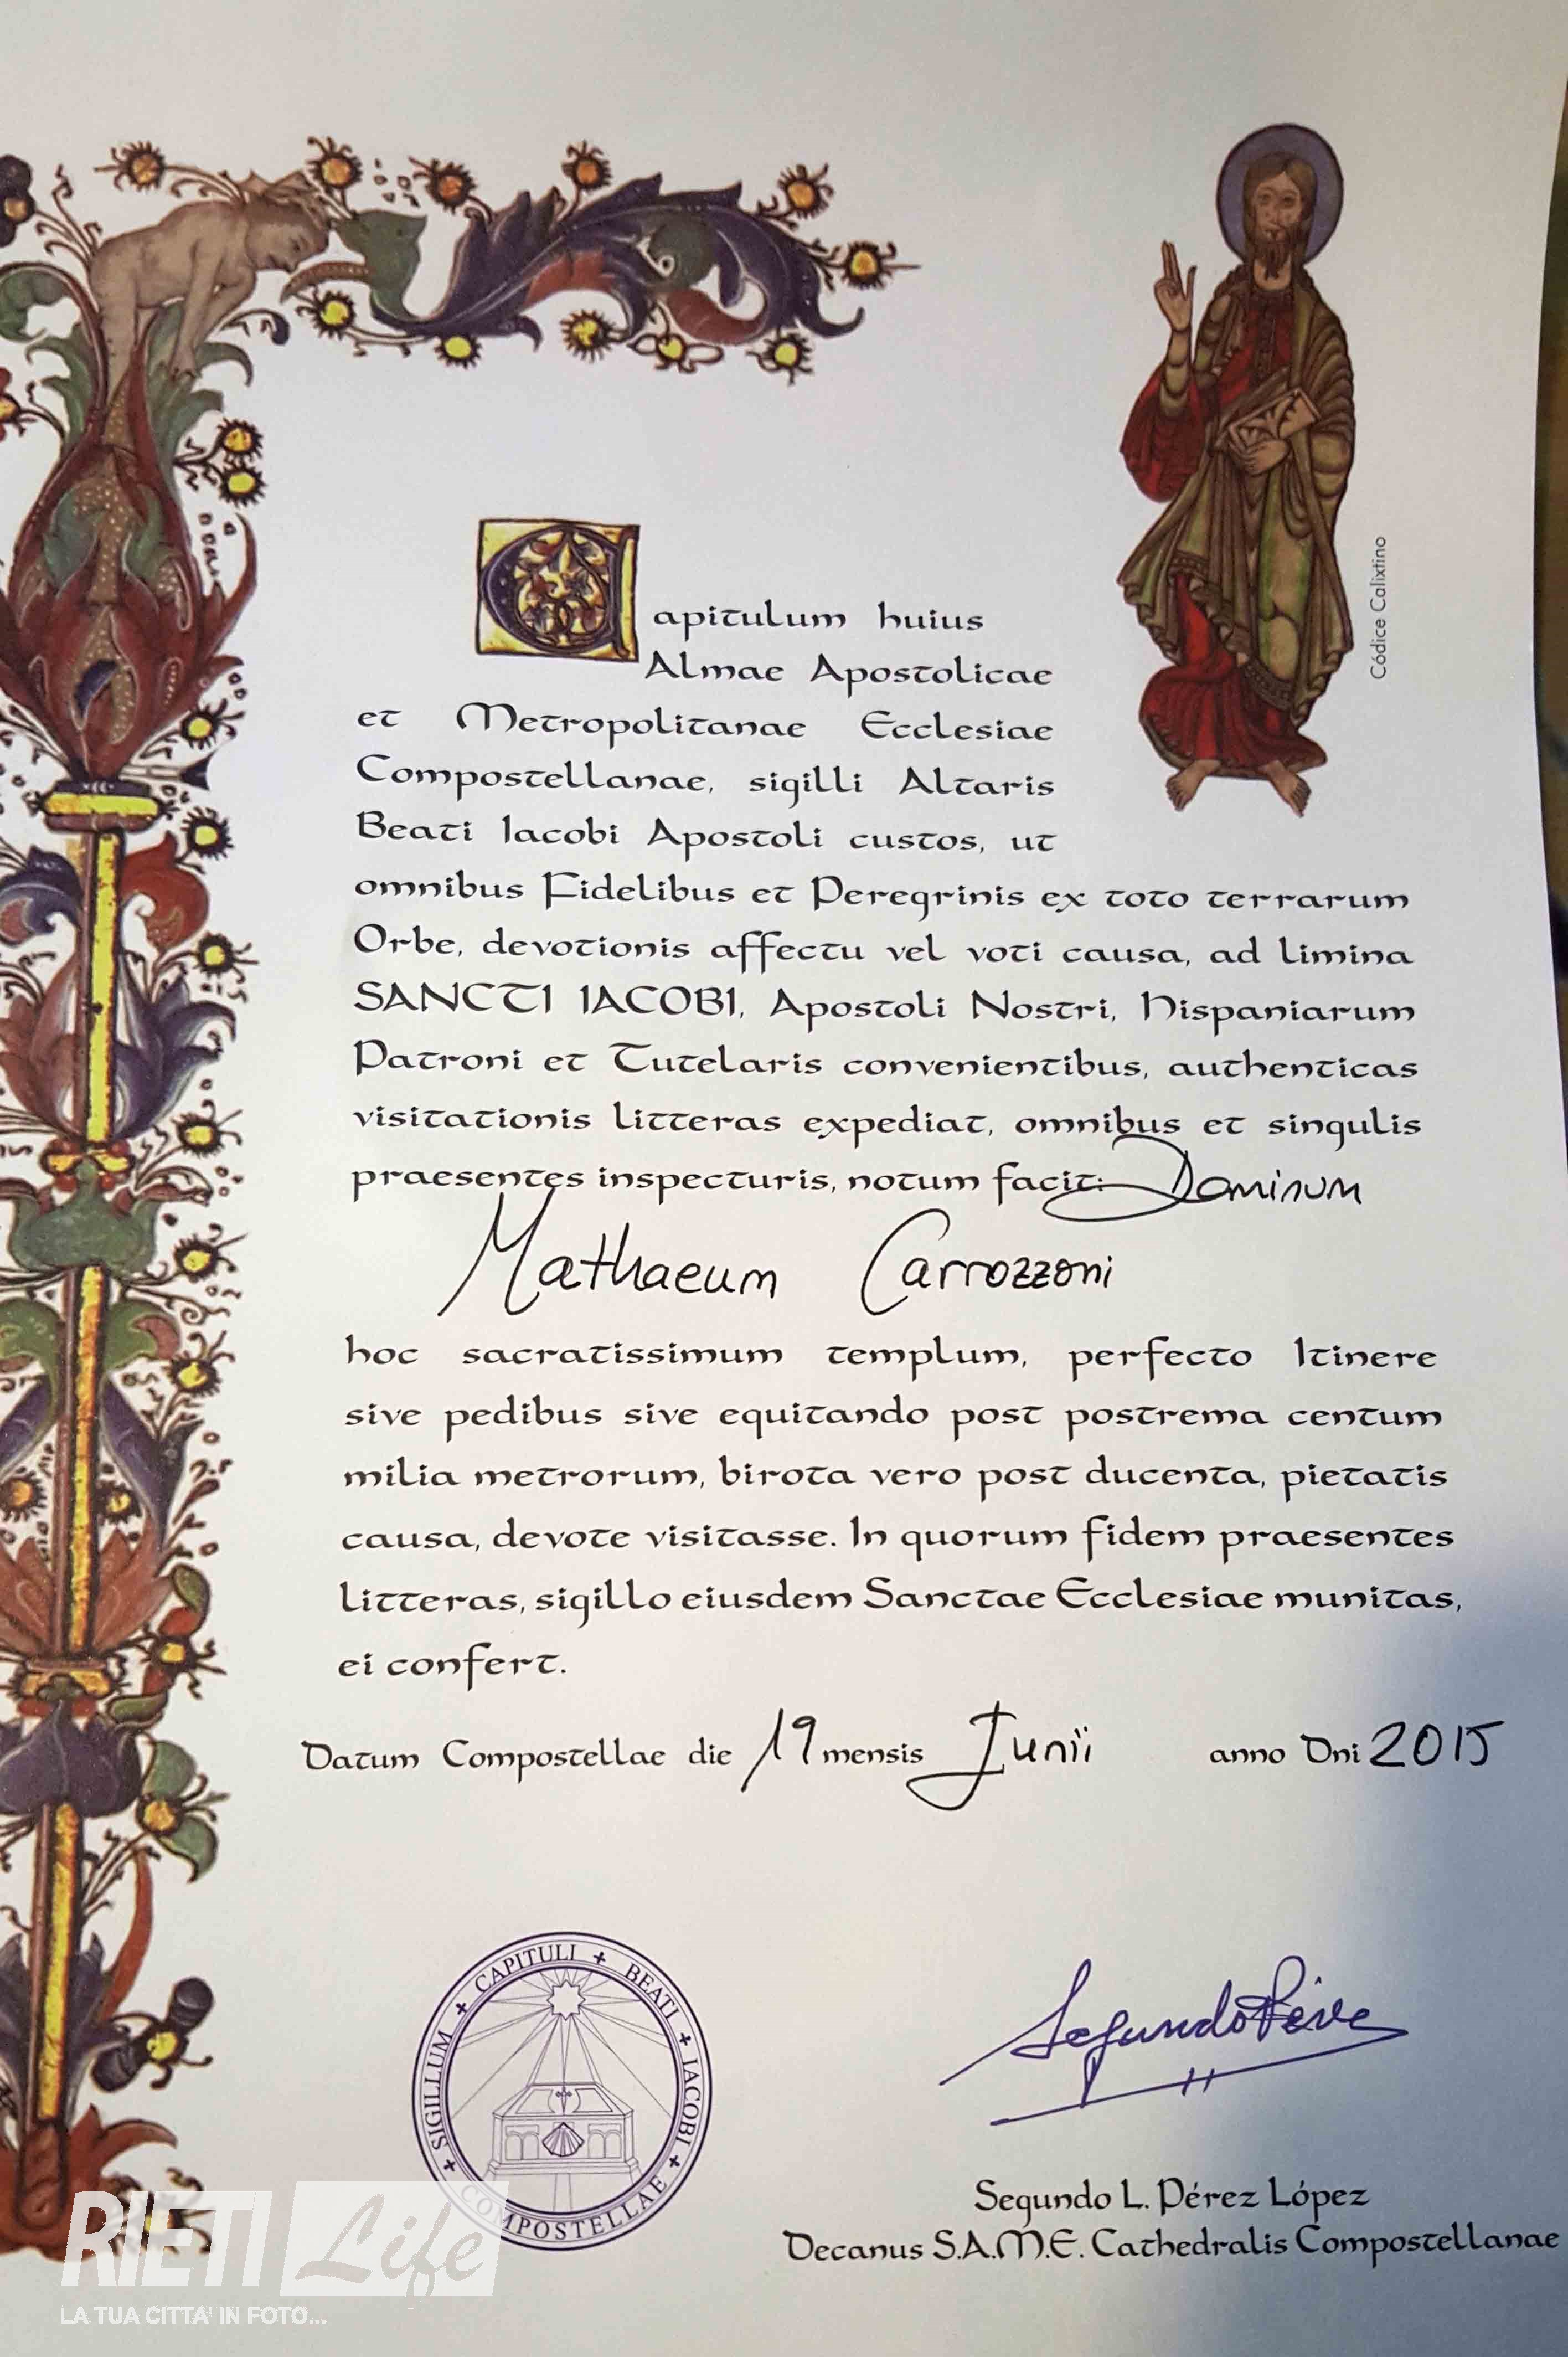 Capitulum huius
Almae Apostolicae
et Metropolitanae Ecclesiae
Compostellanae, sigilli Altaris
Beati Iacobi Apostoli custos, ut
omnibus Fidelibus et Peregrinis ex toto terrarum
Orbe, devotionis affectu vel voti causa, ad limina
SANCTI IACOBI, Apostoli Nostri, Hispaniarum
Patroni et Tutelaris convenientibus, authenticas
visitationis litteras expediat, omnibus et singulis
praesentes inspecturis, notum facit: Dominum
Mathaeum Carrozzoni
hoc sacratissimum templum, perfecto Itinere
sive pedibus sive equitando post postrema centum
milia metrorum, birota vero post ducenta, pietatis
causa, devote visitasse. In quorum fidem praesentes
litteras, sigillo eiusdem Sanctae Ecclesiae munitas,
ei confert.
Datum Compostellae die 19 mensis Junii anno Dni 2015
Códice Calixtino
SIGILLUM + CAPITULI + BEATI + IACOBI + COMPOSTELLAE +
Segundo Pérez
Segundo L. Pérez López
Decanus S.A.M.E. Cathedralis Compostellanae
RIETI Life
LA TUA CITTA' IN FOTO...